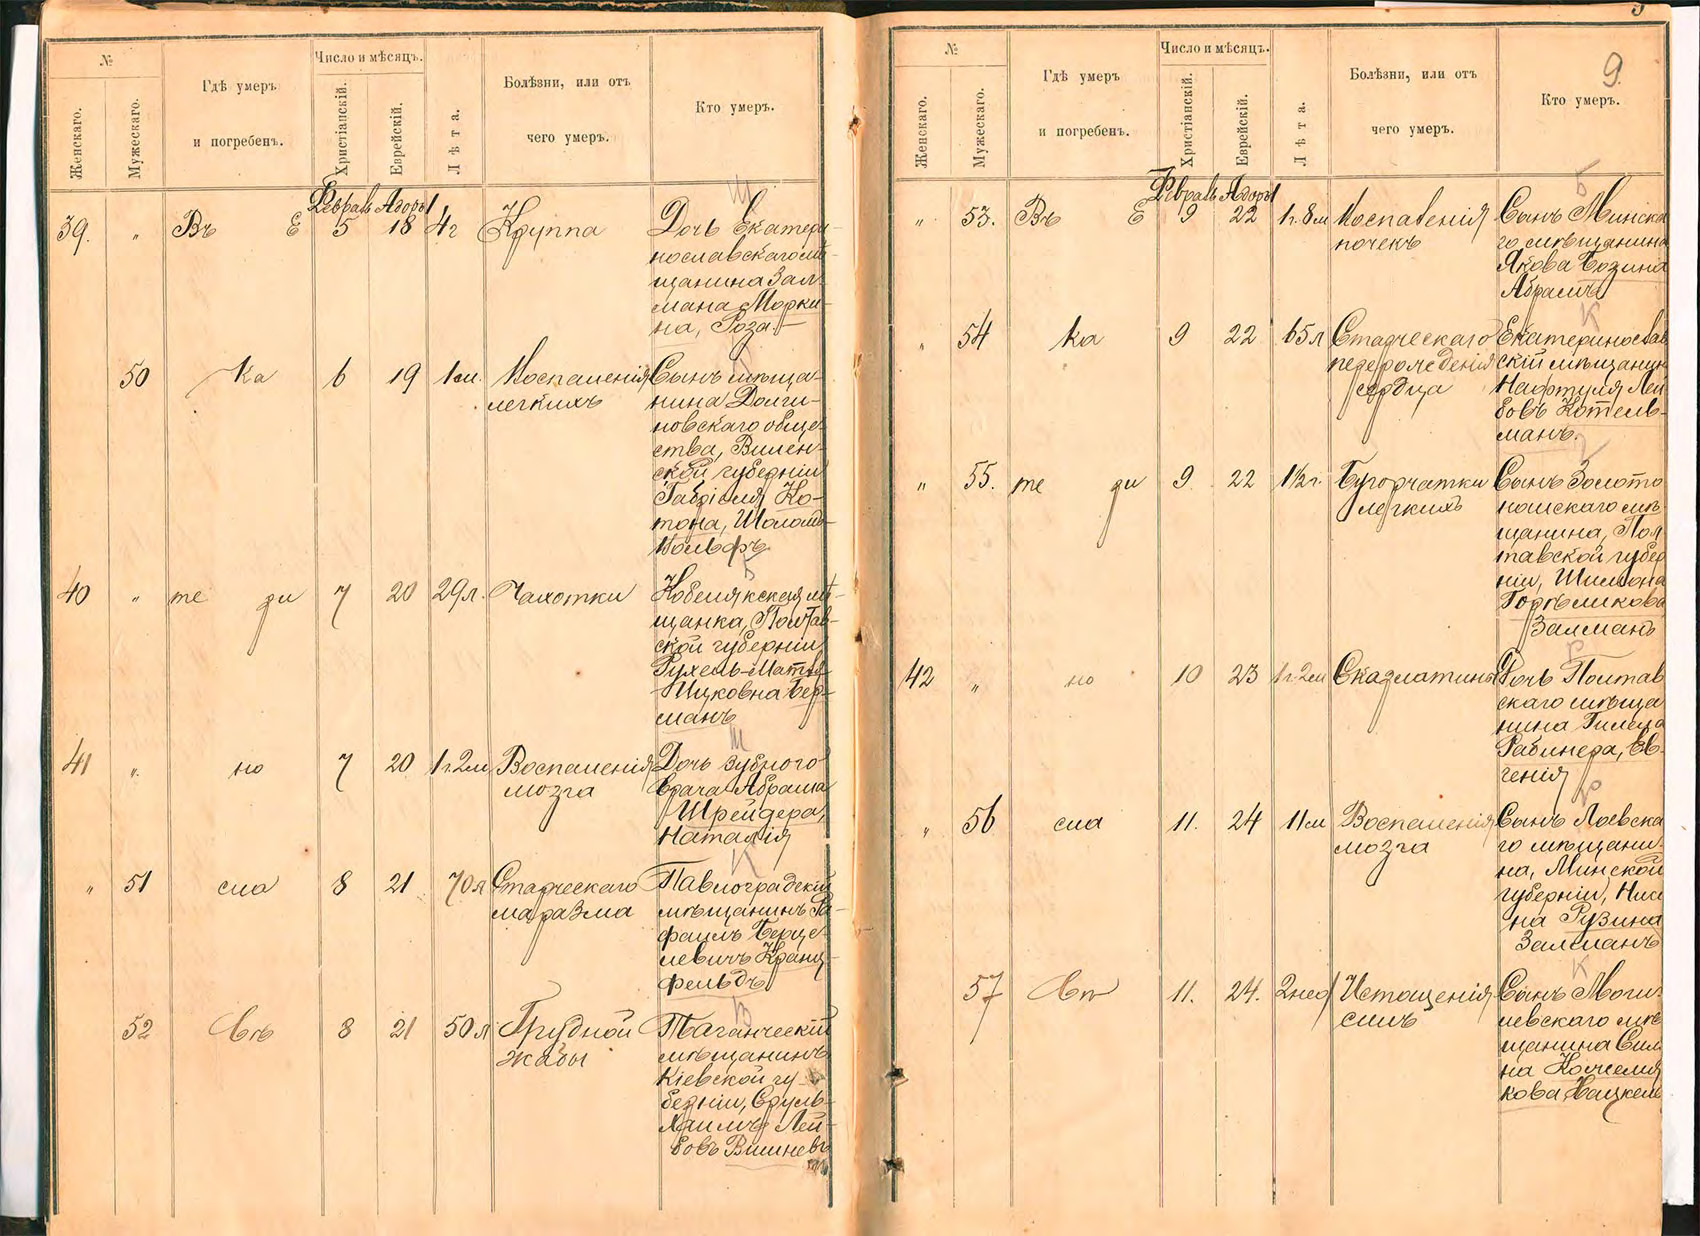 №
Женскаго.
Мужескаго.
Гдѣ умеръ
и погребенъ.
Число и мѣсяцъ.
Христіанскій.
Еврейскій.
Лѣта.
Болѣзни, или отъ
чего умеръ.
Кто умеръ.
Февраль Адоръ 1
39. " Въ Е 5 18 4г Круппа Дочь Екатери-
нославскаго мѣ-
щанина Зал-
мана Морки-
на, Роза.
50 ка 6 19 1 м. Воспаленія Сынъ мѣща-
легкихъ нина Долги-
новскаго обще-
ства, Вилен-
ской губерніи
Габріеля Ко-
тона, Шоломъ-
Вольфъ
40 " те ри 7 20 29 л. Чахотки Кобелякская мѣ-
щанка, Полтав-
ской губерніи
Рухель-Матля
Ицковна Бер-
манъ
41 " но 7 20 1 г. 2 м Воспаленія Дочь зубного
мозга врача Абрама
Шрейдера,
Наталія
" 51 сла 8 21 70 л Старческаго Павлоградскій
маразма мѣщанинъ Ра-
фаилъ Берце-
левичъ Кранц-
фельдъ
52 8 21 50 л Грудной
жабы мѣщанинъ
Кіевской гу-
берніи, Сруль-
Хаимъ Лей-
бовъ Вишнев
№
Женскаго.
Мужескаго.
Гдѣ умеръ
и погребенъ.
Число и мѣсяцъ.
Христіанскій.
Еврейскій.
Лѣта.
Болѣзни, или отъ
чего умеръ.
Кто умеръ.
9
Февраль Адоръ 1
" 53. Въ Е 9 22 1 г. 8 м Воспаленія Сынъ Минска
почекъ го мѣщанина
Якова Бозина
Абрамъ
" 54 ка 9 22 65 л Старческаго Екатеринослав
перерожденія скій мѣщанин
сердца Нафтуля Лей
бовъ Котель-
манъ.
" 55. те ри 9 22 1 1/2 г. Бугорчатки Сынъ Золото
легкихъ ношскаго мѣ-
щанина, Пол
тавской губер
ніи, Шимона
Горѣликова
Залманъ
42 " но 10 23 1 г. 2 м Скарлатины Дочь Полтав
скаго мѣща
нина Гилеля
Рабинера, Ев-
генія
" 56 сла 11. 24 11 м Воспаленія Сынъ Лоевска
мозга го мѣщани-
на, Минской
губерніи,
на Рузина
Залманъ
57 11. 24. 2 нед Истощенія Сынъ Моги-
силъ левскаго мѣ
щанина
на
кова Хацкель